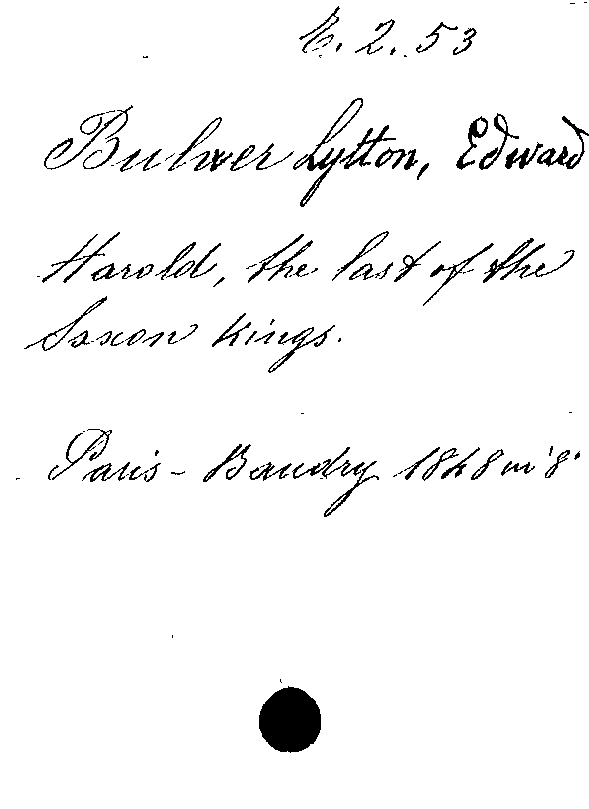 E. 2. 53
Bulwer Lytton, Edward
Harold, the last of the
Saxon Kings.
Paris - Baudry 1848 in 8°